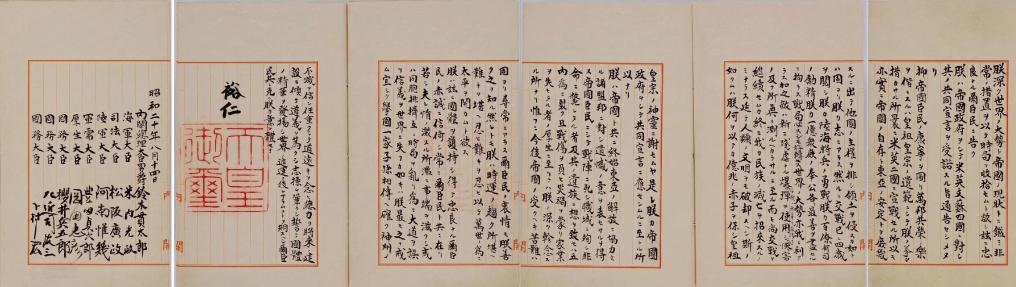 朕深ク世界ノ大勢ト帝國ノ現狀トニ鑑ミ非
常ノ措置ヲ以テ時局ヲ收拾セムト欲シ茲ニ忠
良ナル爾臣民ニ告ク
朕ハ帝國政府ヲシテ米英支蘇四國ニ對シ
其ノ共同宣言ヲ受諾スル旨通告セシメタ
リ
抑〻帝國臣民ノ康寧ヲ圖リ萬邦共榮ノ樂
ヲ偕ニスルハ皇祖皇宗ノ遺範ニシテ朕ノ拳々
措カサル所曩ニ米英二國ニ宣戰セル所以モ
亦實ニ帝國ノ自存ト東亞ノ安定トヲ庶幾
スルニ出テ他國ノ主權ヲ排シ領土ヲ侵スカ如キ
ハ固ヨリ朕カ志ニアラス然ルニ交戰已ニ四歲
ヲ閱シ朕カ陸海將兵ノ勇戰朕カ百僚有司
ノ勵精朕カ一億衆庶ノ奉公各〻最善ヲ盡セルニ
拘ラス戰局必スシモ好轉セス世界ノ大勢亦我ニ利アラス
加之敵ハ新ニ殘虐ナル爆彈ヲ使用シテ頻ニ無辜ヲ殺傷シ慘害
ノ及フ所眞ニ測ルヘカラサルニ至ル而モ尚交戰ヲ
繼續セムカ終ニ我カ民族ノ滅亡ヲ招來スルノ
ミナラス延テ人類ノ文明ヲモ破却スヘシ斯ノ
如クムハ朕何ヲ以テカ億兆ノ赤子ヲ保シ皇祖
皇宗ノ神靈ニ謝セムヤ是レ朕カ帝國
政府ヲシテ共同宣言ニ應セシムルニ至レル所
以ナリ
朕ハ帝國ト共ニ終始東亞ノ解放ニ協力セ
ル諸盟邦ニ對シ遺憾ノ意ヲ表セサルヲ得
ス帝國臣民ニシテ戰陣ニ死シ職域ニ殉シ非
命ニ斃レタル者及其ノ遺族ニ想ヲ致セハ五
內爲ニ裂ク且戰傷ヲ負ヒ災禍ヲ蒙リ家業
ヲ失ヒタル者ノ厚生ニ至リテハ朕ノ深ク軫念ス
ル所ナリ惟フニ今後帝國ノ受クヘキ苦難ハ
固ヨリ尋常ニアラス爾臣民ノ衷情モ朕善
ク之ヲ知ル然レトモ朕ハ時運ノ趨ク所堪ヘ
難キヲ堪ヘ忍ヒ難キヲ忍ヒ以テ萬世ノ爲ニ
太平ヲ開カムト欲ス
朕ハ茲ニ國體ヲ護持シ得テ忠良ナル爾臣
民ノ赤誠ニ信倚シ常ニ爾臣民ト共ニ在リ
若シ夫レ情ノ激スル所濫ニ事端ヲ滋クシ或
ハ同胞排擠互ニ時局ヲ亂リ爲ニ大道ヲ誤
リ信義ヲ世界ニ失フカ如キハ朕最モ之ヲ戒
ム宜シク擧國一家子孫相傳ヘ確ク神州ノ
不滅ヲ信シ任重クシテ道遠キヲ念ヒ總力ヲ將來ノ建
設ニ傾ケ道義ヲ篤クシ志操ヲ鞏クシ誓テ國體
ノ精華ヲ發揚シ世界ノ進運ニ後レサラムコトヲ期スヘシ爾臣
民其レ克ク朕カ意ヲ體セヨ
裕仁
天皇御璽
昭和二十年八月十四日
內閣總理大臣男爵 鈴木貫太郎
海軍大臣 米內光政
司法大臣 松阪廣政
陸軍大臣 阿南惟幾
軍需大臣 豐田貞次郎
厚生大臣 岡田忠彥
國務大臣 櫻井兵五郎
國務大臣 左近司政三
國務大臣 下村宏